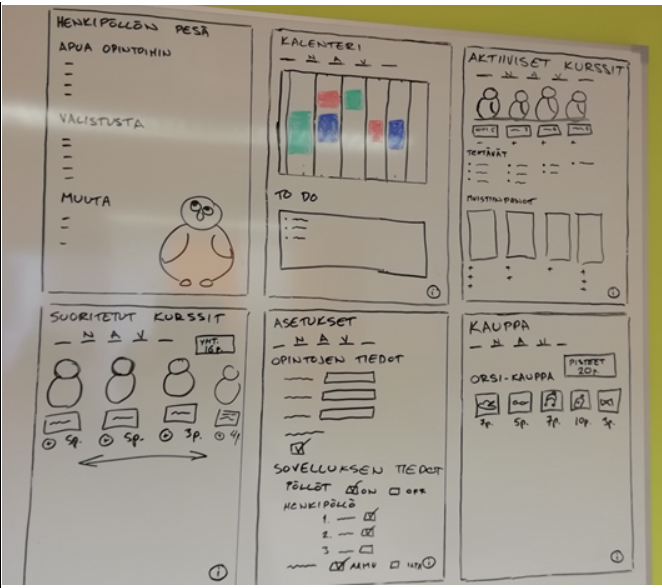 HENKIPÖLLÖN PESÄ
APUA OPINTOIHIN
VALISTUSTA
MUUTA
KALENTERI
N A V
TO DO
AKTIIVISET KURSSIT
N A V
TEHTÄVÄT
MUISTIINPANOT
SUORITETUT KURSSIT
N A V
YHT.
16p.
5p. 5p. 3p.
ASETUKSET
N A V
OPINTOJEN TIEDOT
SOVELLUKSEN TIEDOT
PÖLLÖT ON OFF
HENKIPÖLLÖ
1.
2.
3
AAMU ILTA
KAUPPA
N A V
PISTEET
20p.
ORSI-KAUPPA
5p. 7p. 10p. 3p.